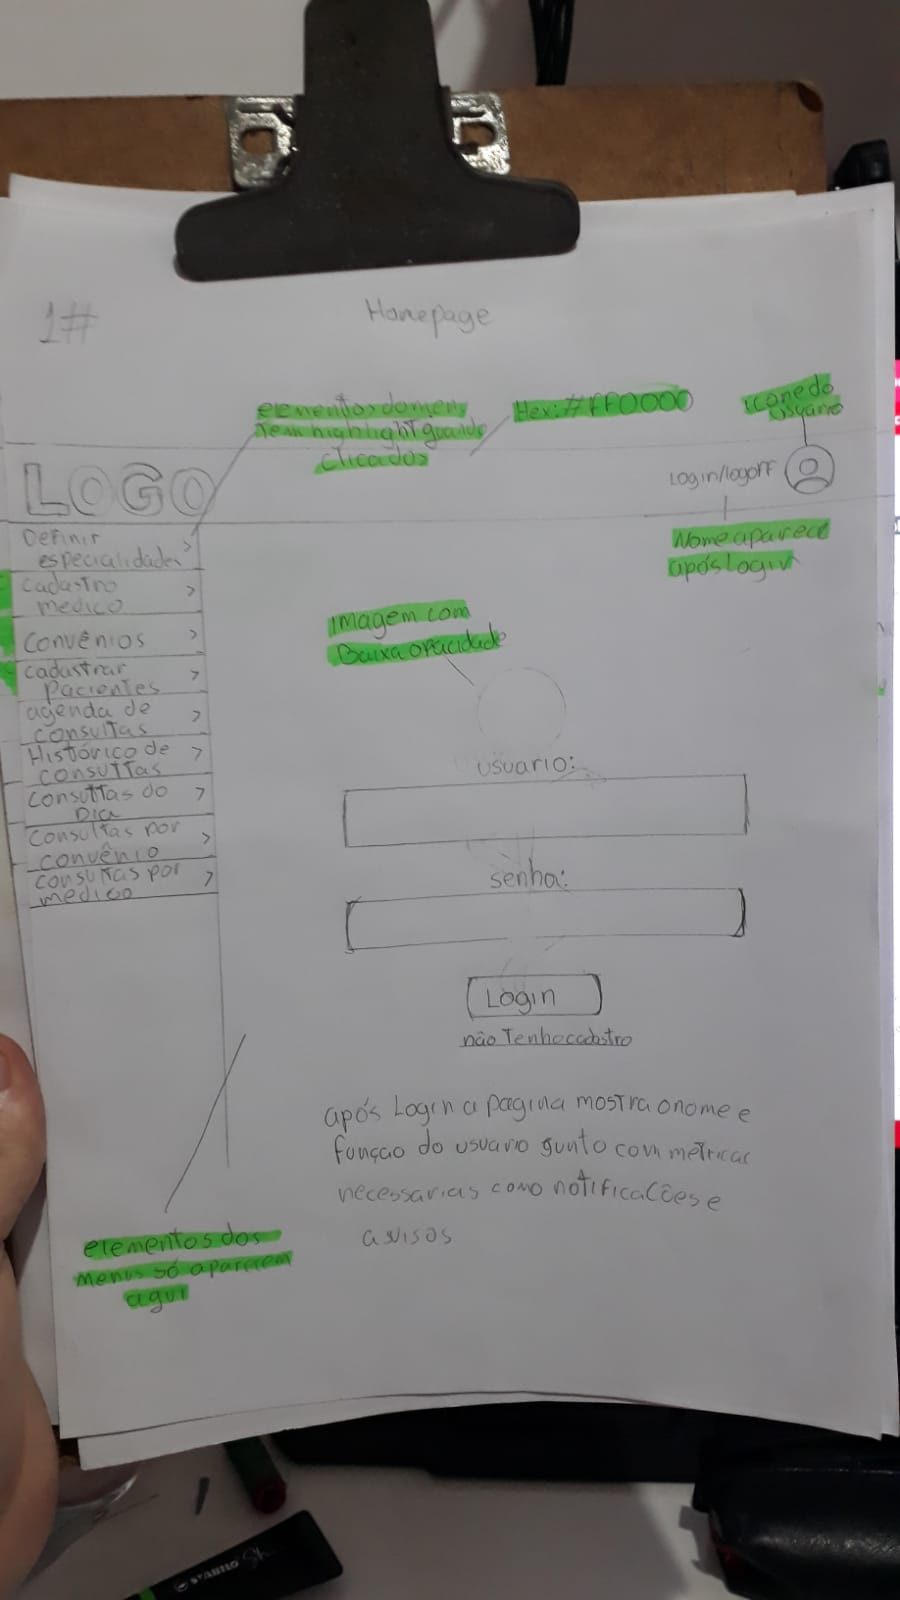 1#
Homepage
elementos do menu
tem highlight quando
clicados
Hex: #FF0000
Icone do
usuario
LOGO
Login/logoff
Nome aparece
após login
Definir
especialidades >
cadastro
medico >
convênios >
cadastrar
pacientes >
agenda de
consultas >
Histórico de
consultas >
consultas do
Dia >
consultas por
convênio >
consultas por
medico >
imagem com
Baixa opacidade
usuario:
senha:
Login
não Tenho cadastro
após Login a pagina mostra o nome e
função do usuario gunto com métricas
necessarias como notificações e
avisos
elementos dos
menus só aparecem
aqui
STABILO